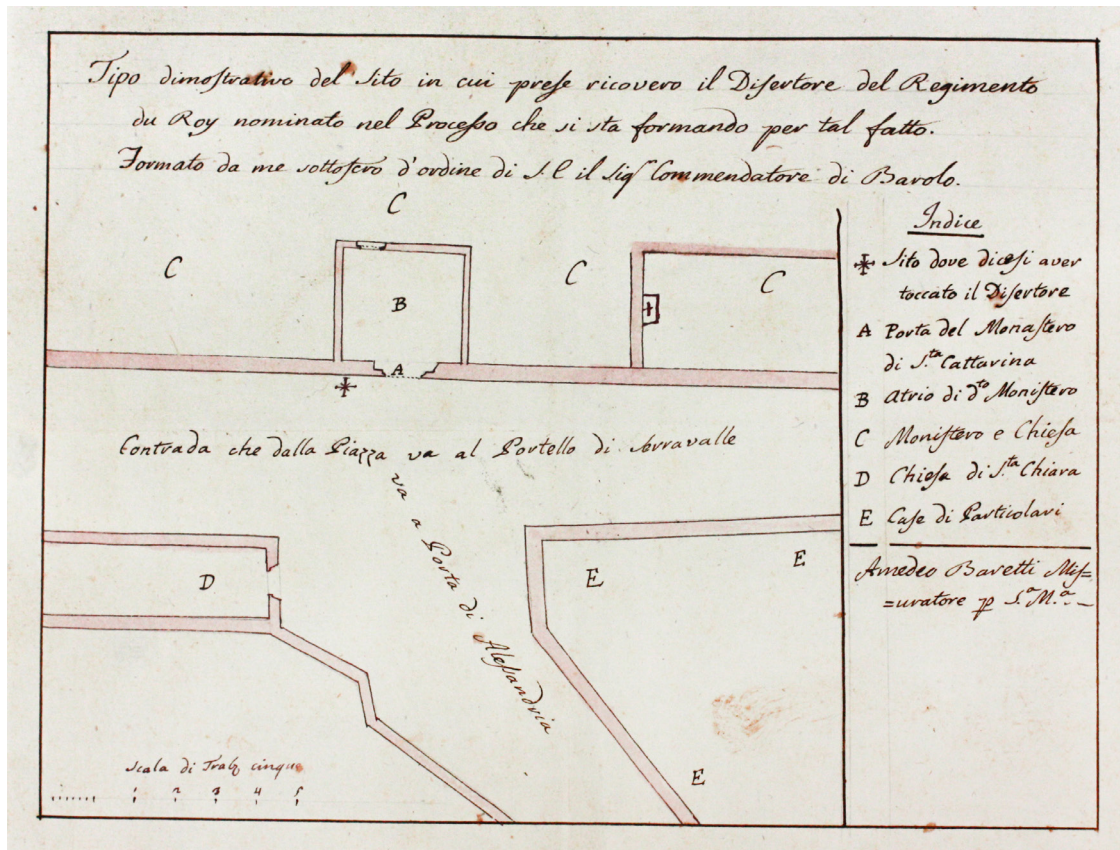 Tipo dimostrativo del Sito in cui prese ricovero il Disertore del Regimento
du Roy nominato nel Processo che si sta formando per tal fatto.
Formato da me sottoscro d'ordine di S. E il Sigr Commendatore di Barolo.
C
C
B
C
C
A
Contrada che dalla Piazza va al Portello di Serravalle
va a Porta di Alessandria
D
E
E
E
Scala di Trab. cinque
1 2 3 4 5
Indice
Sito dove dicesi aver
toccato il Disertore
A Porta del Monastero
di S.ta Cattarina
B Atrio di d.to Monistero
C Monistero e Chiesa
D Chiesa di S.ta Chiara
E Case di Particolari
Amedeo Baretti Mis=
=uratore p S.a M.a